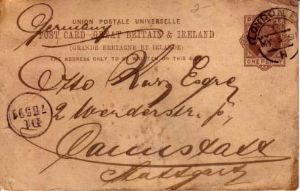 Germany
UNION POSTALE UNIVERSELLE
POST CARD GREAT BRITAIN & IRELAND
(GRANDE BRETAGNE ET IRLANDE)
THE ADDRESS ONLY TO BE WRITTEN ON THIS SIDE
ONE PENNY
Otto Kurz Esqre
2 Werderstr.
Cannstatt
Stuttgart